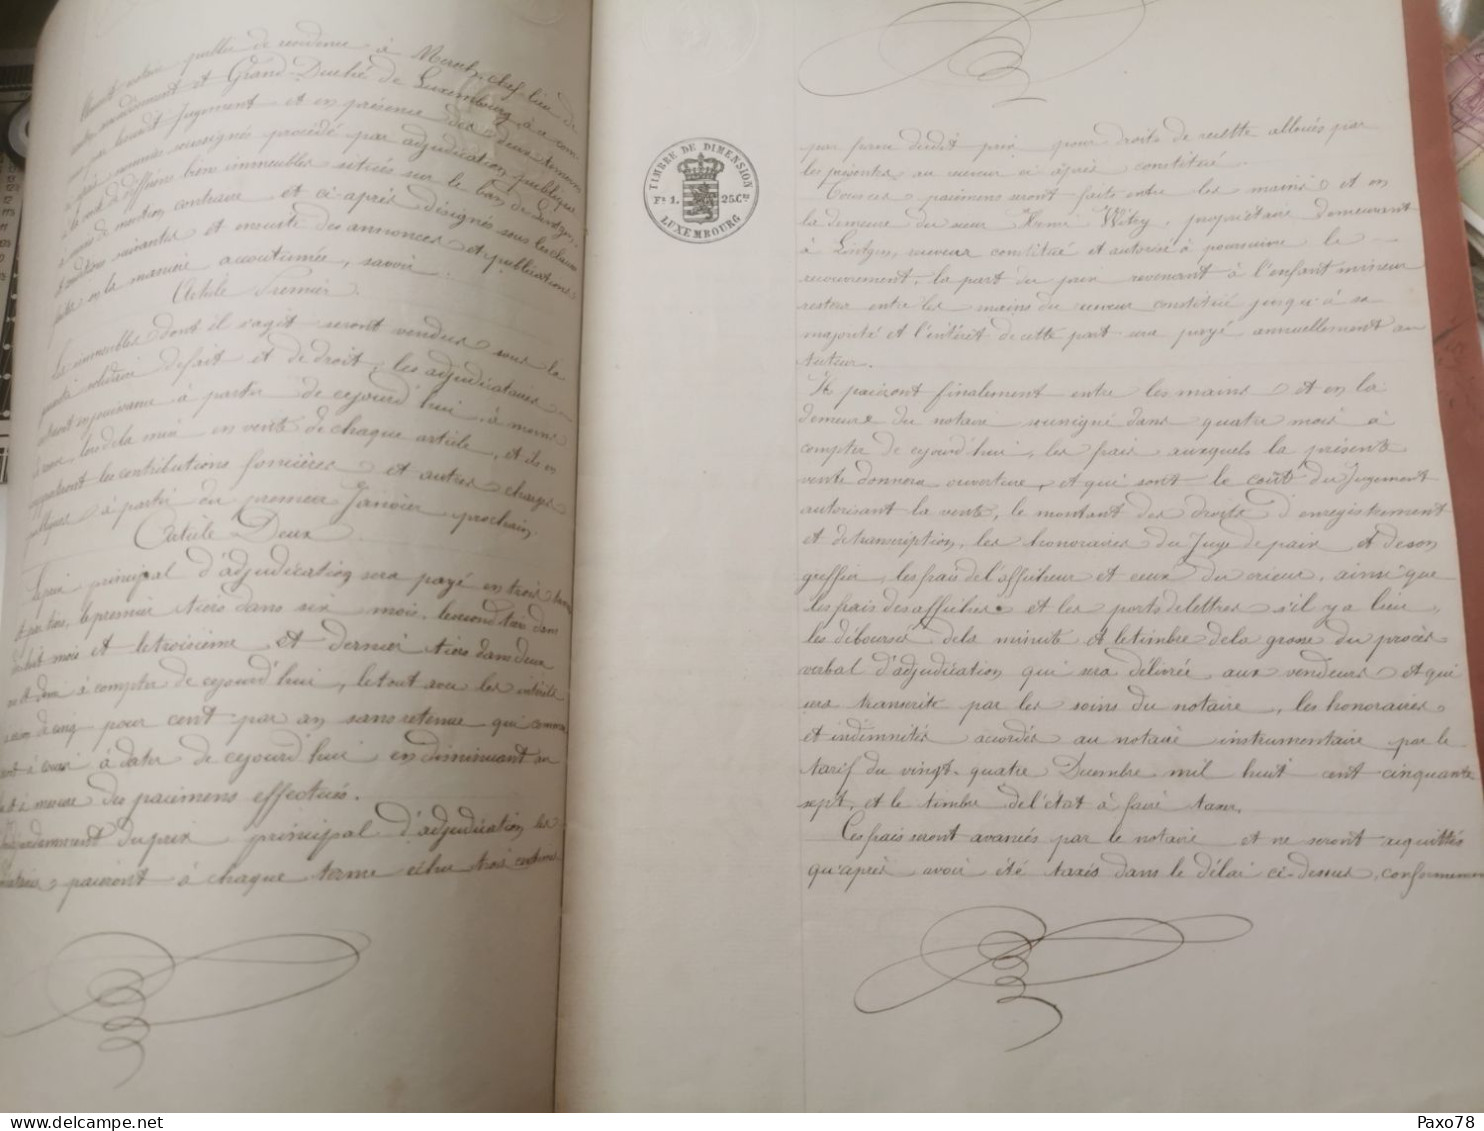 notaire public de résidence à Mersch, chef lieu de
et Grand-Duché de Luxembourg, à ce com-
par Jugement et en présence des deux témoins
soussignés procédé par adjudication publique
biens immeubles situés sur le ban de Lintgen,
contraire et ci-après désignés sous les clauses
conditions suivantes et ensuite des annonces et publications
de la manière accoutumée, savoir.
Article Premier.
Les immeubles dont il s'agit seront vendus sous la
garantie solidaire de fait et de droit, les adjudicataires
en jouissance à partir de cejourd'hui à moins
lors de la mise en vente de chaque article, et ils en
les contributions foncières et autres charges
publiques à partir du premier Janvier prochain.
Article Deux.
Le prix principal d'adjudication sera payé en trois termes
le premier tiers dans six mois, le second tiers dans
dix huit mois et le troisième et dernier tiers dans deux
ans et demi à compter de cejourd'hui, le tout avec les intérêts
à raison de cinq pour cent par an sans retenue qui commen-
ceront à courir à dater de cejourd'hui en diminuant au
fur et à mesure des paiemens effectués.
du prix principal d'adjudication les
paieront à chaque terme échu trois centimes
TIMBRE DE DIMENSION
Fr 1. 25 Cs
LUXEMBOURG
par franc dudit prix pour droits de recette alloués par
les présentes au receveur ci après constitué.
Tous ces paiemens seront faits entre les mains et en
la demeure du sieur Henri Wéley, propriétaire demeurant
à Lintgen, receveur constitué et autorisé à poursuivre le
recouvrement, la part du prix revenant à l'enfant mineur
restera entre les mains du receveur constitué jusqu'à sa
majorité et l'intérêt de cette part sera payé annuellement au
tuteur.
Ils paieront finalement entre les mains et en la
demeure du notaire soussigné dans quatre mois à
compter de cejourd'hui, les frais auxquels la présente
vente donnera ouverture, et qui sont le coût du Jugement
autorisant la vente, le montant des droits d'enregistrement
et de transcription, les honoraires du Juge de paix et de son
greffier, les frais de l'afficheur et ceux du crieur, ainsi que
les frais des affiches et les ports de lettres s'il y a lieu,
les déboursés de la minute et le timbre de la grosse du procès-
verbal d'adjudication qui sera délivrée aux vendeurs et qui
sera transcrite par les soins du notaire, les honoraires
et indemnités accordés au notaire instrumentaire par le
tarif du vingt-quatre Décembre mil huit cent cinquante
sept, et le timbre de l'état à faire taxer.
Ces frais seront avancés par le notaire et ne seront acquittés
qu'après avoir été taxés dans le délai ci-dessus, conformément
Paxo78